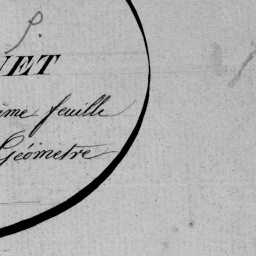 P.
UET
ème feuille
Géomètre